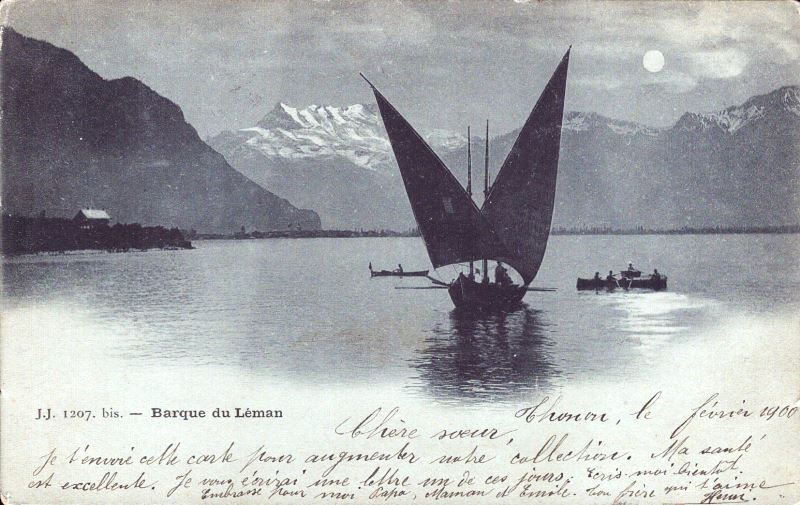 J.J. 1207. bis. — Barque du Léman
Thonon, le février 1900
Chère sœur,
Je t'envoie cette carte pour augmenter notre collection. Ma santé
est excellente. Je vous écrirai une lettre un de ces jours. Écris-moi bientôt.
Embrasse pour moi Papa, Maman et Emile. Ton frère qui t'aime
Henri.